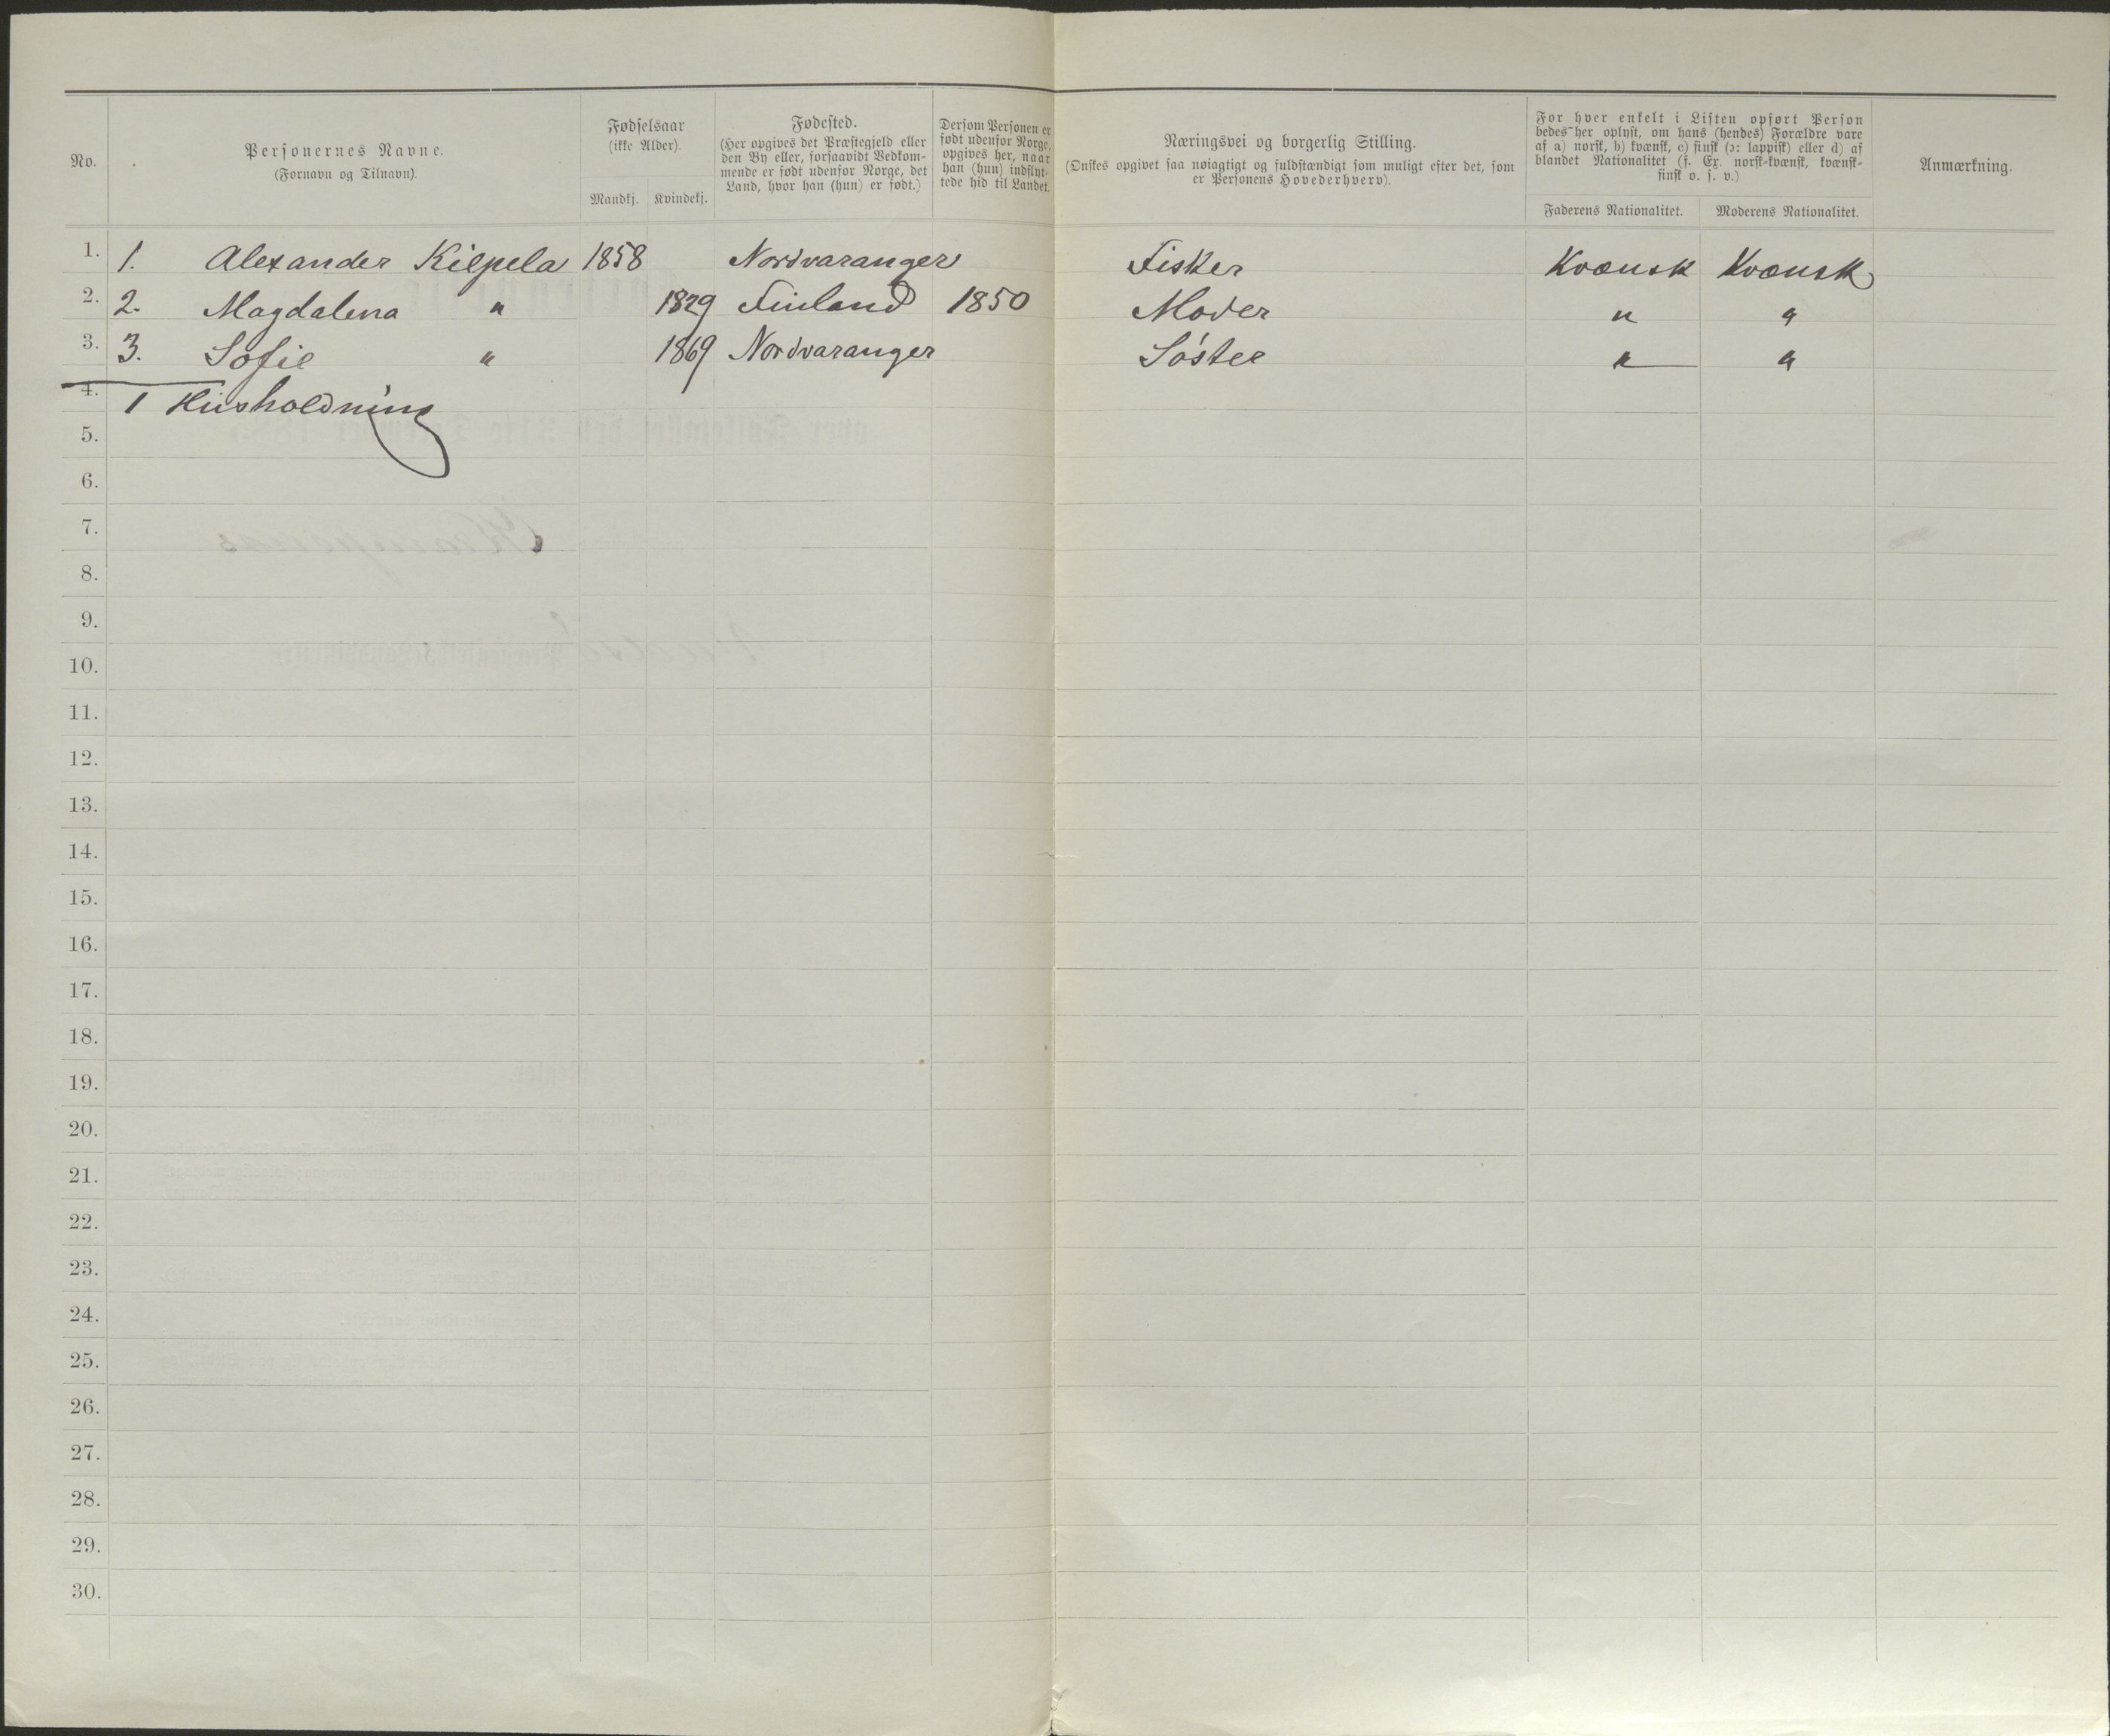 No.
Personernes Navne.
(Fornavn og Tilnavn).
Fødselsaar
(ikke Alder).
Mandkj. Kvindekj.
Fødested.
(Her opgives det Præstegjeld eller
den By eller, forsaavidt Vedkom-
mende er født udenfor Norge, det
Land, hvor han (hun) er født.)
Dersom Personen er
født udenfor Norge,
opgives her, naar
han (hun) indflyt-
tede hid til Landet.
Næringsvei og borgerlig Stilling.
(Ønskes opgivet saa nøiagtigt og fuldstændigt som muligt efter det, som
er Personens Hovederhverv).
For hver enkelt i Listen opført Person
bedes her oplyst, om hans (hendes) Forældre vare
af a) norsk, b) kvænsk, c) finsk (ɔ: lappisk) eller d) af
blandet Nationalitet (f. Ex. norsk-kvænsk, kvænsk-
finsk o. s. v.)
Faderens Nationalitet. Moderens Nationalitet.
Anmærkning.
1. 1. Alexander Kilpela 1858 Nordvaranger Fisker Kvænsk Kvænsk
2. 2. Magdalena " 1829 Finland 1850 Moder " "
3. 3. Sofie " 1869 Nordvaranger Søster " "
4. 1 Husholdning
5.
6.
7.
8.
9.
10.
11.
12.
13.
14.
15.
16.
17.
18.
19.
20.
21.
22.
23.
24.
25.
26.
27.
28.
29.
30.